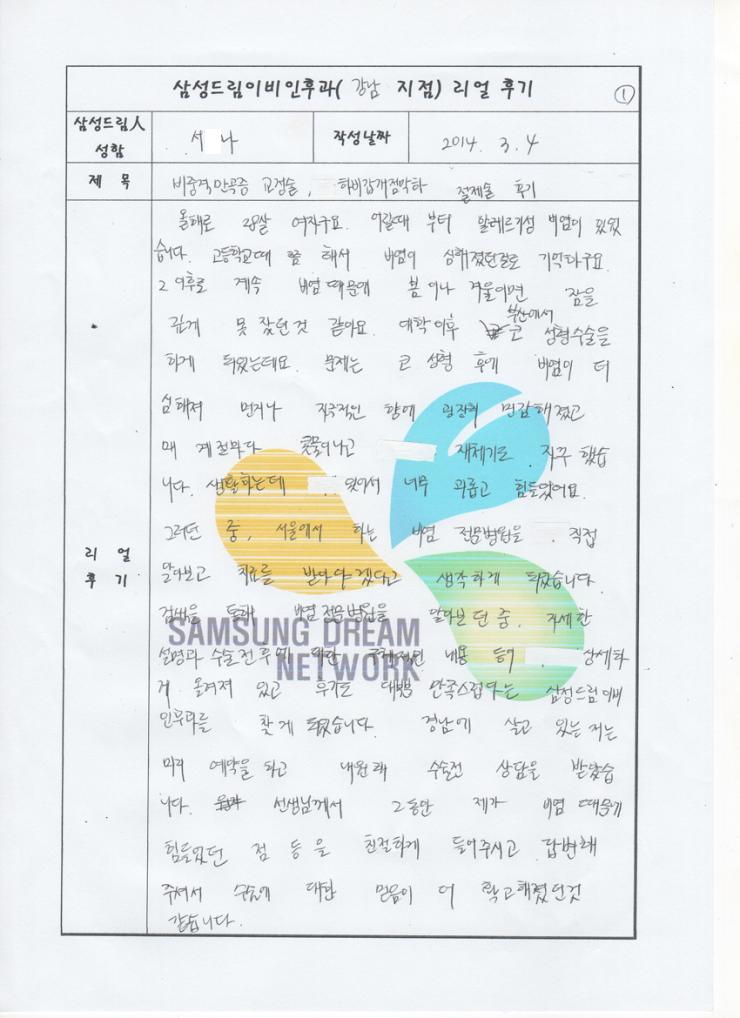 삼성드림이비인후과( 강남 지점) 리얼 후기 ①
삼성드림人
성함
서 나
작성날짜
2014. 3. 4
제 목
비중격만곡증 교정술, 하비갑개점막하 절제술 후기
리 얼
후 기
올해로 28살 여자구요. 어릴때 부터 알레르기성 비염이 있었
습니다. 고등학교때 쯤 해서 비염이 심해졌던걸로 기억하구요.
그 이후로 계속 비염때문에 봄이나 겨울이면 잠을
깊게 못 잤던것 같아요. 대학이후 부산에서 코 성형수술을
하게 되었는데요. 문제는 코 성형 후에 비염이 더
심해져 먼지나 자극적인 향에 굉장히 민감해졌고
매 계절마다 콧물이나고 재채기도 자꾸 했습
니다. 생활하는데 있어서 너무 괴롭고 힘들었어요.
그러던 중, 서울에서 하는 비염 전문병원을 직접
알아보고 치료를 받아야겠다고 생각하게 되었습니다.
검색을 통해 비염전문병원을 알아보던중, 자세한
설명과 수술전후에 대한 구체적인 내용 등이 상세하
게 올려져 있고 후기도 대부분 만족스럽다는 삼성드림이비
인후과를 찾게 되었습니다. 경남에 살고 있는 저는
미리 예약을 하고 내원해 수술전 상담을 받았습
니다. 선생님께서 그동안 제가 비염 때문에
힘들었던 점 등을 친절하게 들어주시고 답변해
주셔서 수술에 대한 믿음이 더 확고해졌던것
같습니다.
SAMSUNG DREAM
NETWORK